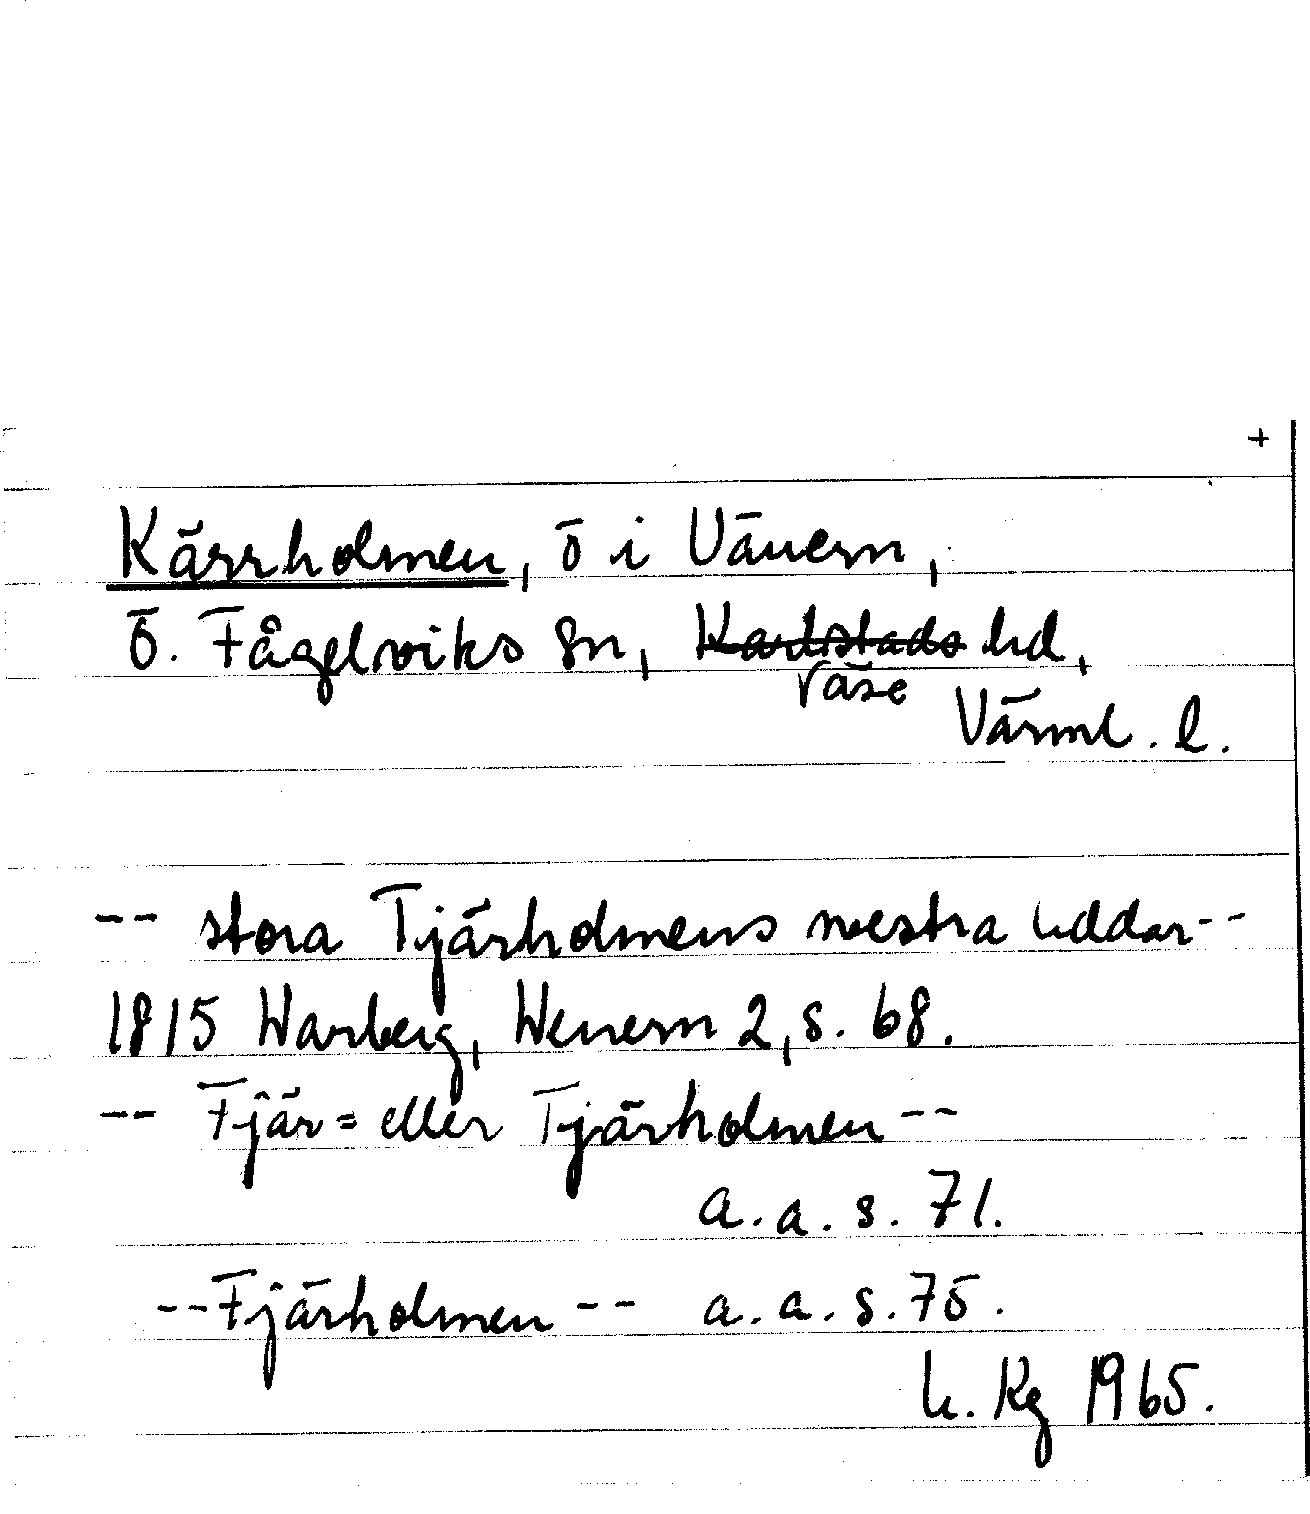 +
Kärrholmen, ö i Vänern,
Ö. Fågelviks sn, Karlstads hd,
Väse
Värml. l.
-- stora Tjärholmens westra uddar --
1815 Warberg, Wenern 2, s. 68.
-- Fjär= eller Tjärholmen --
a. a. s. 71.
-- Fjärholmen -- a. a. s. 75.
Kg 1965.